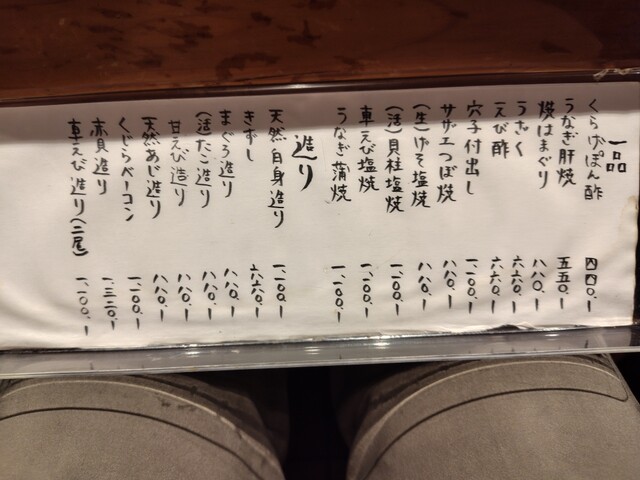 一品
くらげぽん酢 四四〇.ー
うなぎ肝焼 五五〇.ー
焼はまぐり 八八〇.ー
うざく 六六〇.ー
えび酢 六六〇.ー
穴子付出し 一、一〇〇.ー
サザエつぼ焼 八八〇.ー
(生)げそ塩焼 八八〇.ー
(活)貝柱塩焼 一、一〇〇.ー
車えび塩焼 一、一〇〇.ー
うなぎ蒲焼 一、一〇〇.ー
造り
天然白身造り 一、一〇〇.ー
きずし 六六〇.ー
まぐろ造り 八八〇.ー
(活)たこ造り 八八〇.ー
甘えび造り 八八〇.ー
天然あじ造り 八八〇.ー
くじらベーコン 一、一〇〇.ー
赤貝造り 一、三二〇.ー
車えび造り(二尾) 一、一〇〇.ー